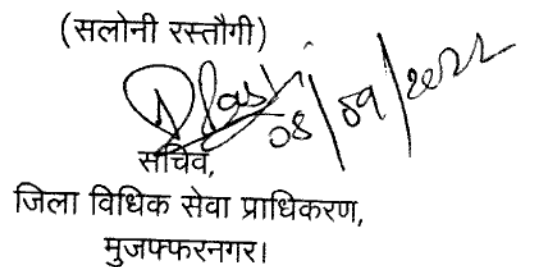 (सलोनी रस्तौगी)
08/09/2022
सचिव,
जिला विधिक सेवा प्राधिकरण,
मुजफ्फरनगर।